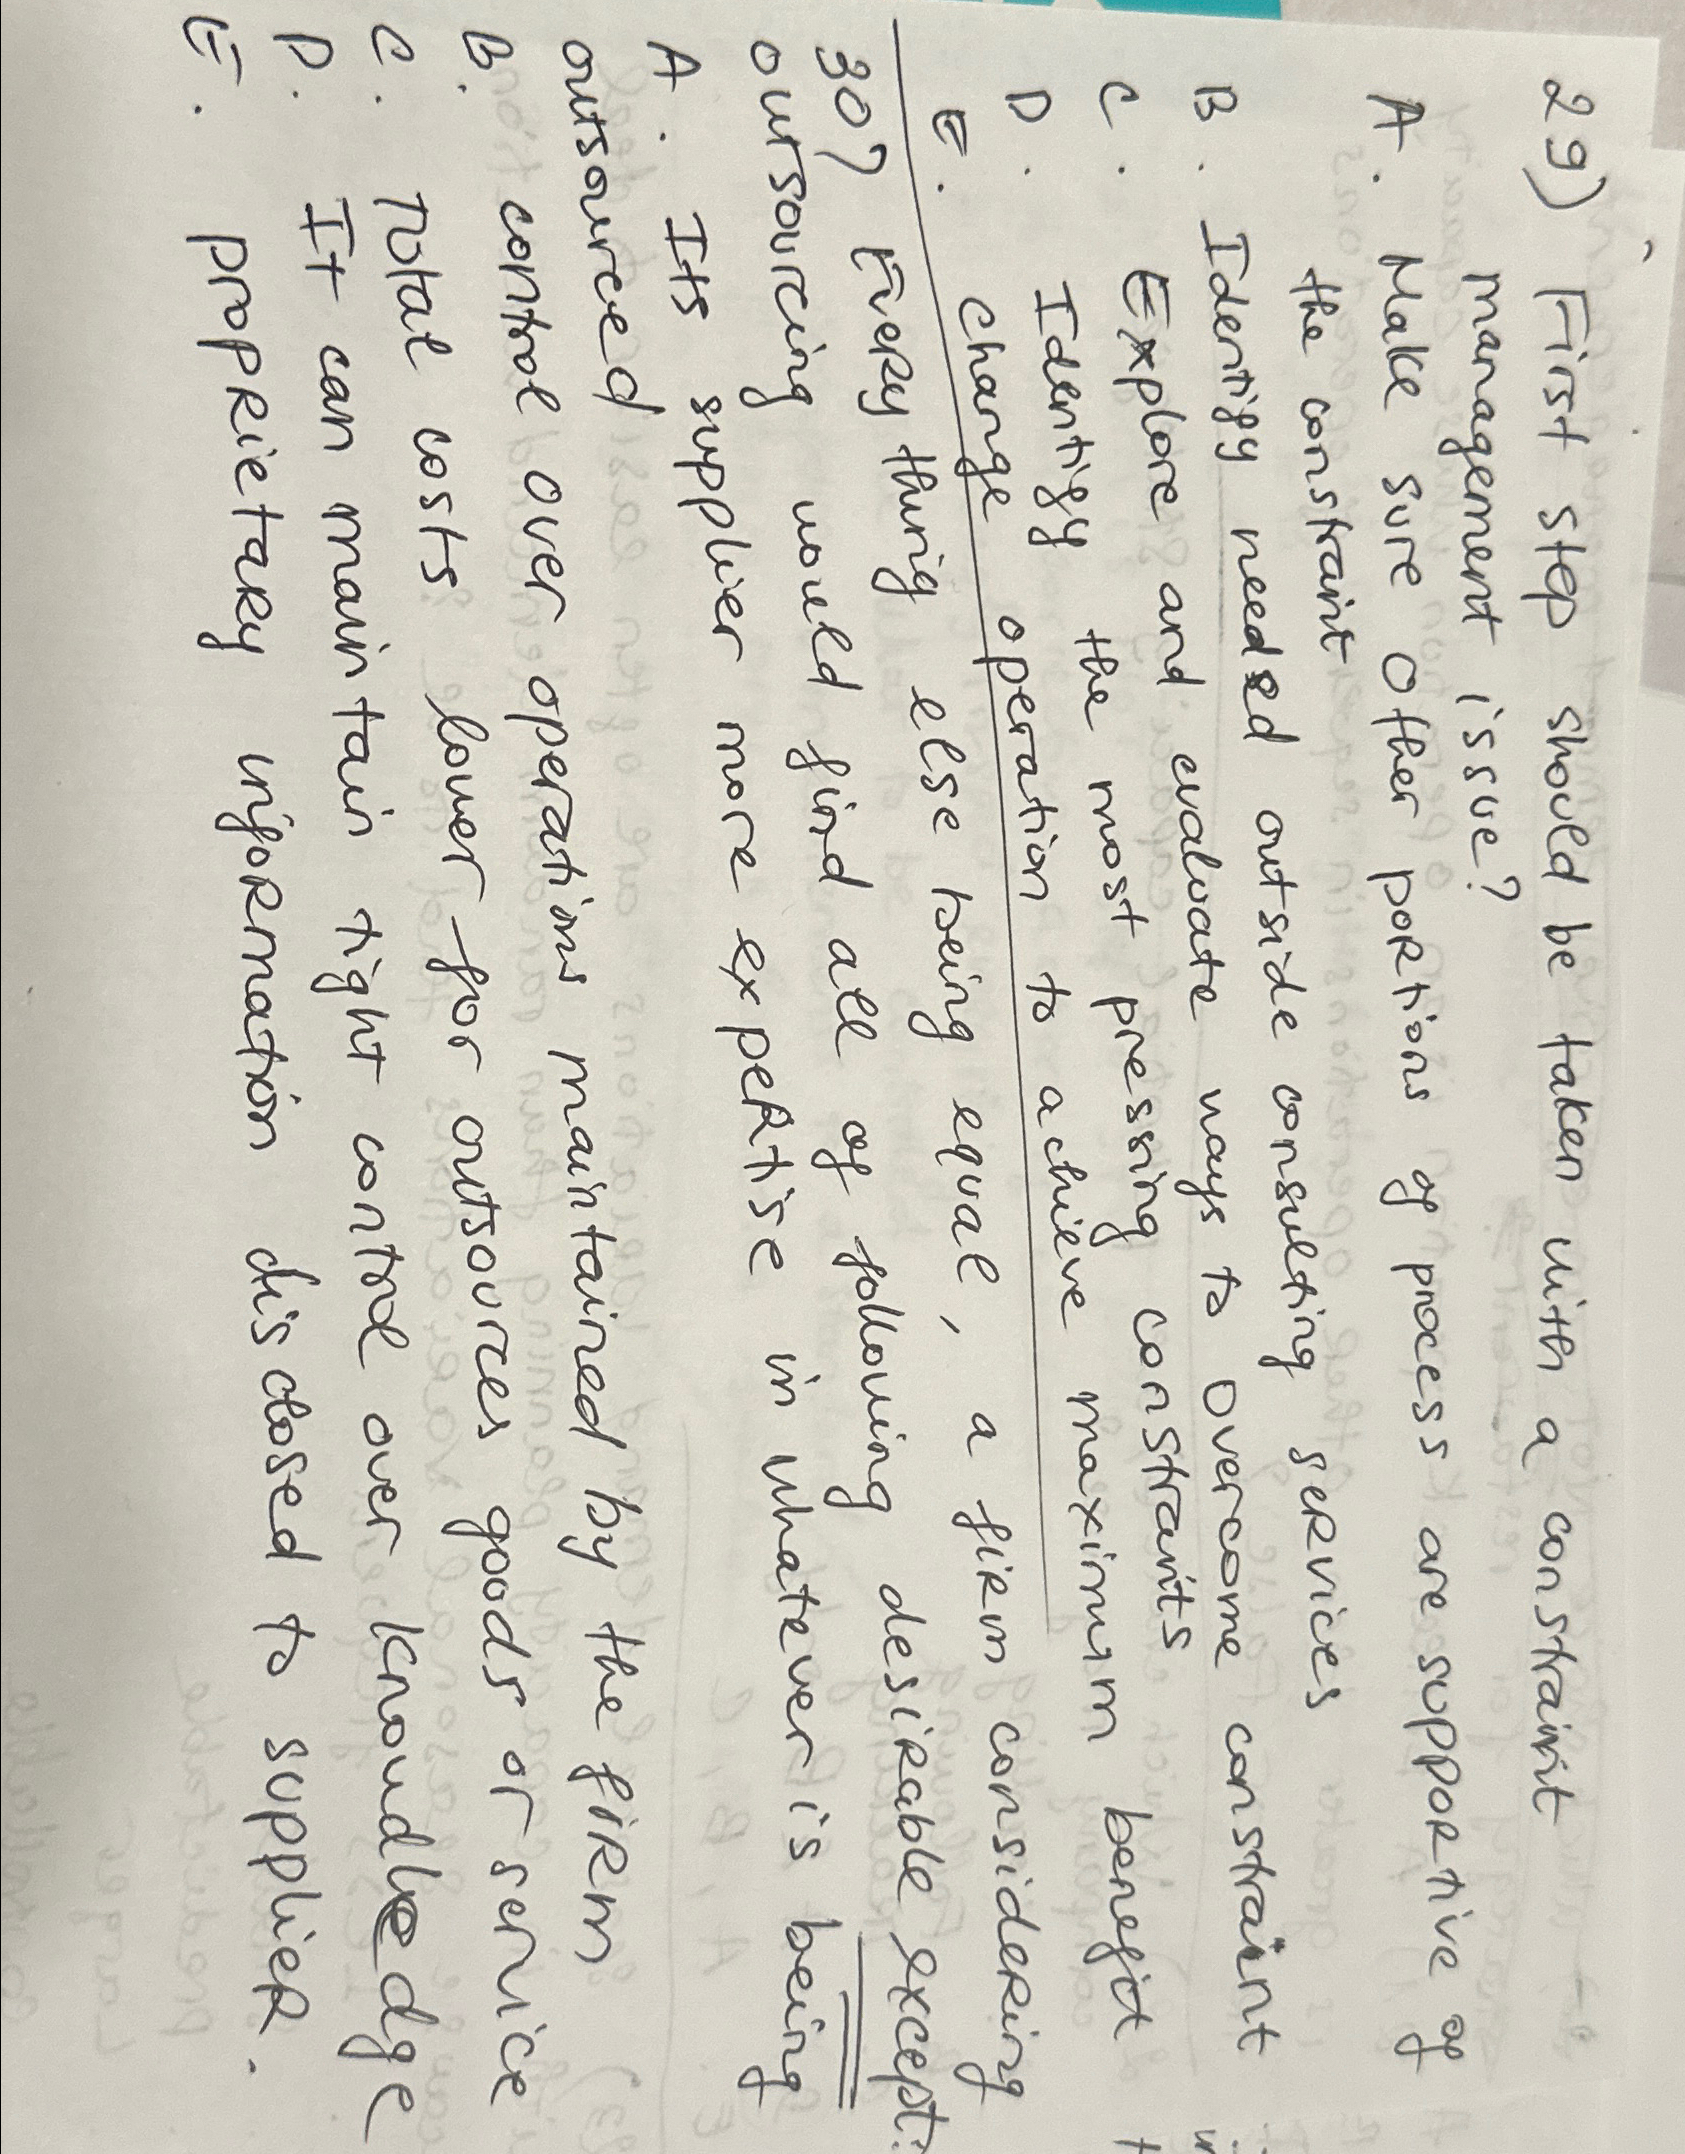 29) First step should be taken with a constraint
management issue?
A. Make sure other portions of process are supportive of
the constraint
B. Identify needed outside consulting services
C. Explore and evaluate ways to overcome constraint
D. Identify the most pressing constraints
E. Change operation to achieve maximum benefit
30) Everything else being equal, a firm considering
outsourcing would find all of following desirable except:
A. Its supplier more expertise in whatever is being
outsourced
B. control over operations maintained by the firm
C. Total costs lower for outsources goods or service
D. It can maintain tight control over knowdledge
E. proprietary information disclosed to supplier.